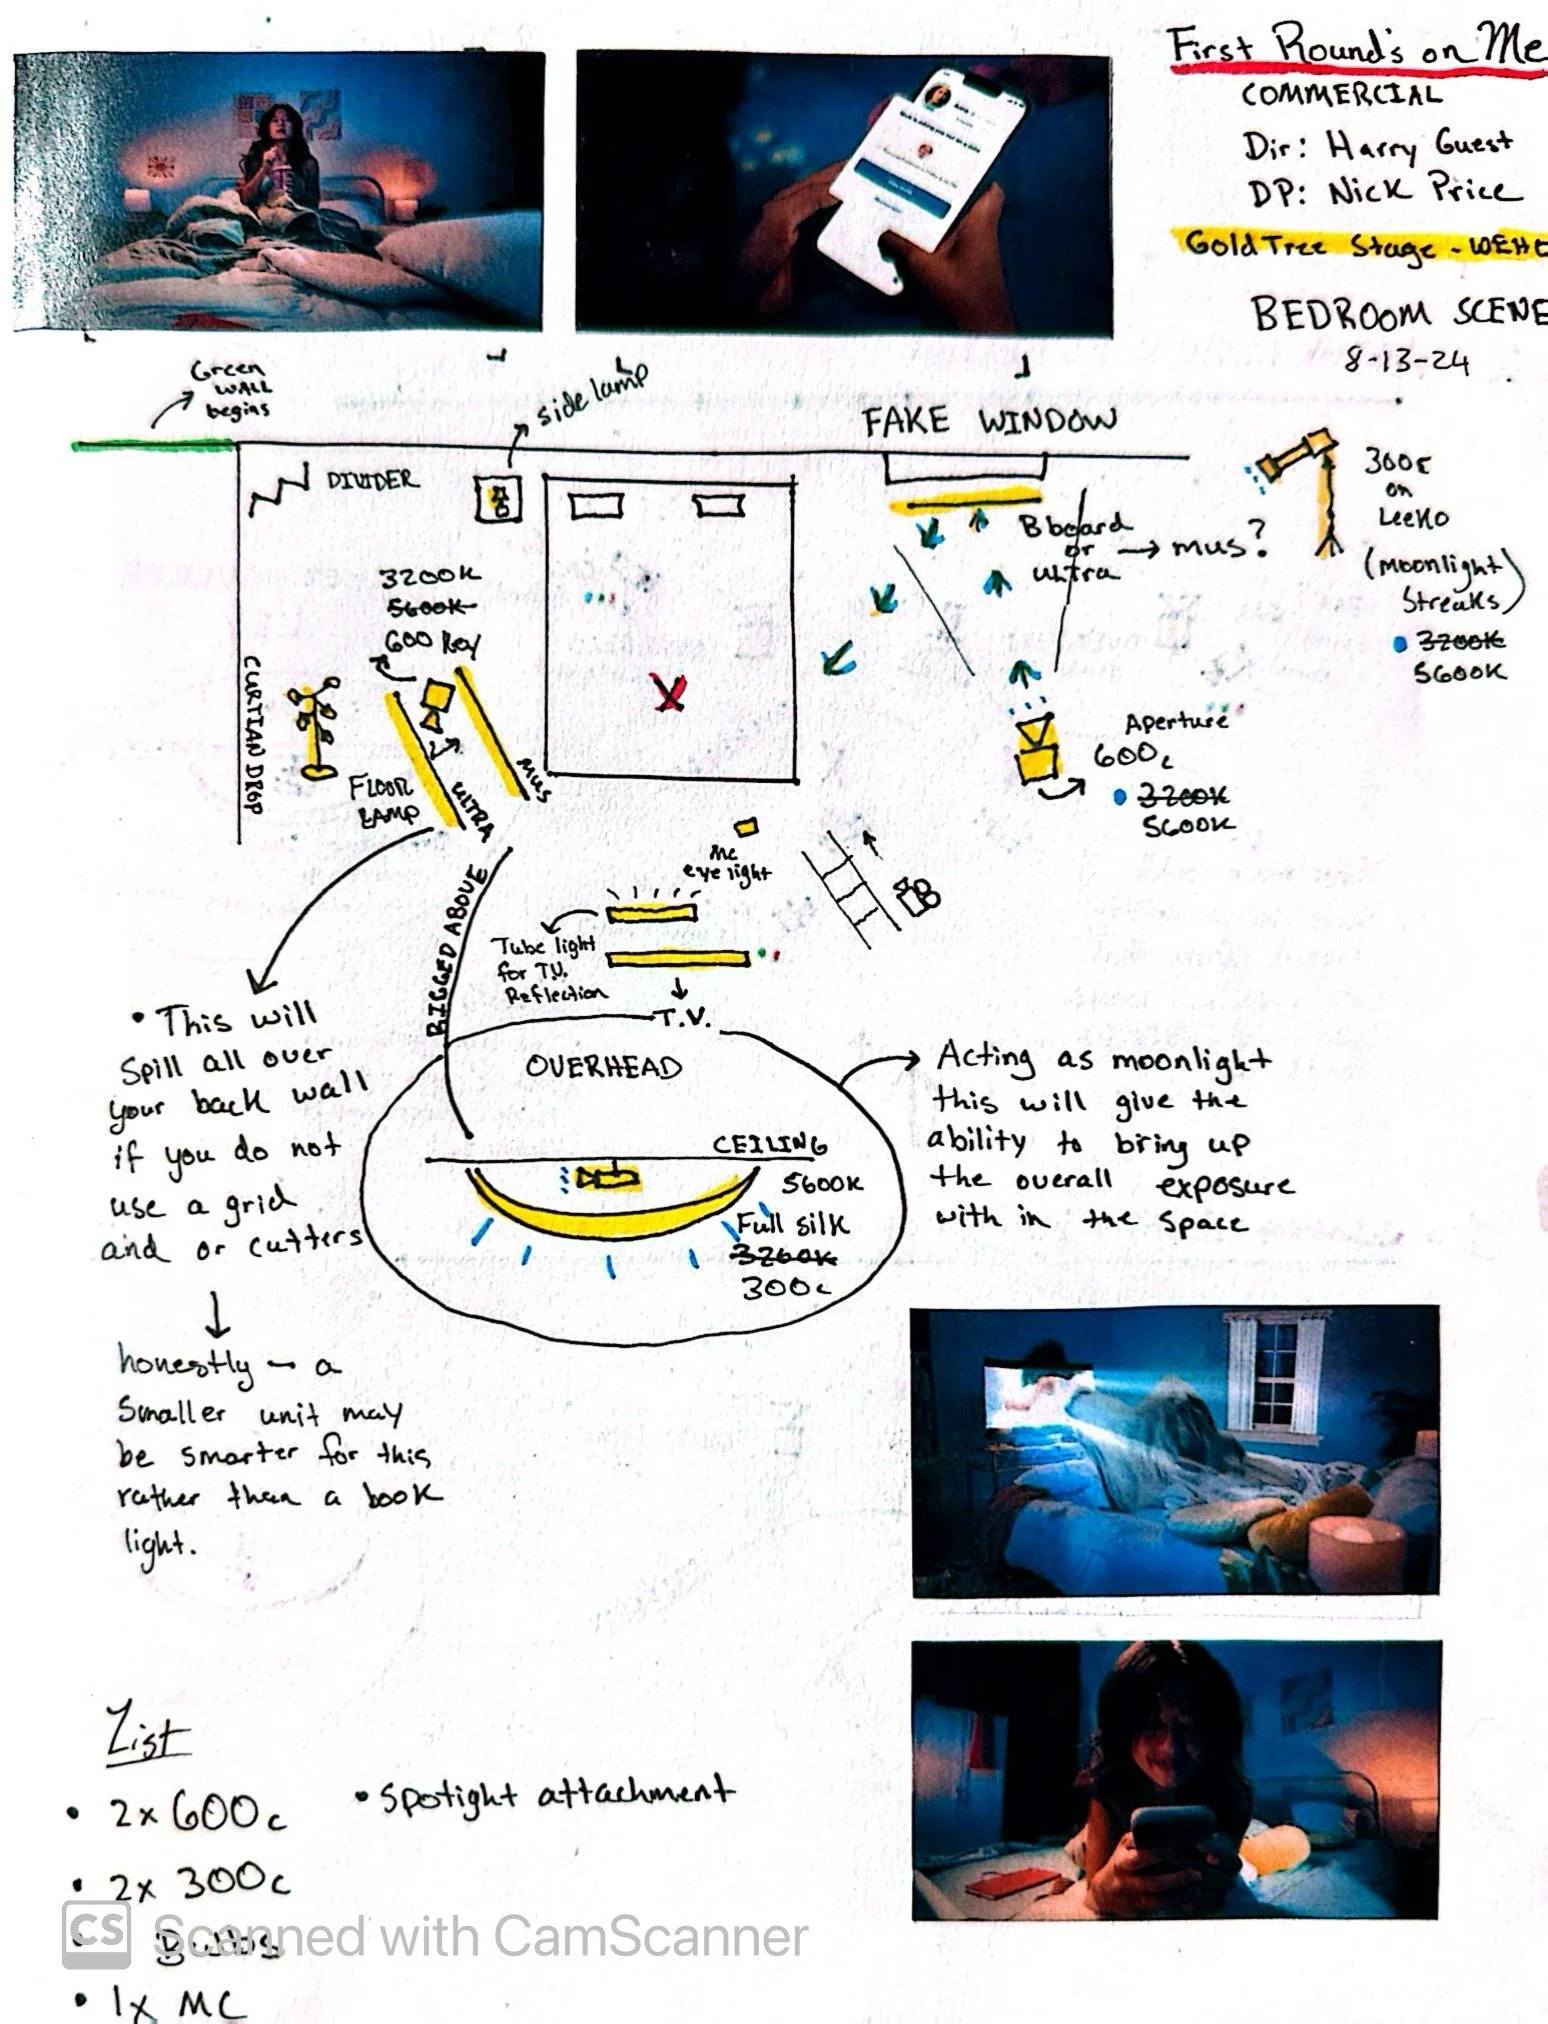 First Round's on Me
COMMERCIAL
Dir: Harry Guest
DP: Nick Price
Gold Tree Stage - WEHO
BEDROOM SCENE
8-13-24
Green
WALL
begins
side lamp
FAKE WINDOW
DIVIDER
300c
on
Leeko
(moonlight
streaks)
3200K
5600K
B board
or
ultra
mus?
3200K
5600K
600 Key
CURTIAN DROP
FLOOR
LAMP
ULTRA
MUS
Aperture
600c
3200K
5600K
mc
eye light
RIGGED ABOVE
Tube light
for T.V.
Reflection
T.V.
OVERHEAD
CEILING
5600K
Full silk
3200K
300c
• This will
Spill all over
your back wall
if you do not
use a grid
and or cutters
honestly - a
Smaller unit may
be smarter for this
rather than a book
light.
Acting as moonlight
this will give the
ability to bring up
the overall exposure
with in the space
List
• 2x 600c
• 2x 300c
• Bulbs
• 1x MC
• spotight attachment
CS Scanned with CamScanner